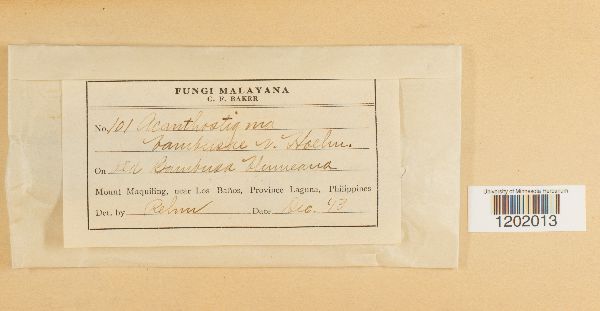 FUNGI MALAYANA
C. F. BAKER
No. 101 Acanthostigma
bambusae v. Hoehn.
On Bambusa Blumeana
Mount Maquiling, near Los Baños, Province Laguna, Philippines
Det. by Rehm Date Dec. '13
University of Minnesota Herbarium
1202013